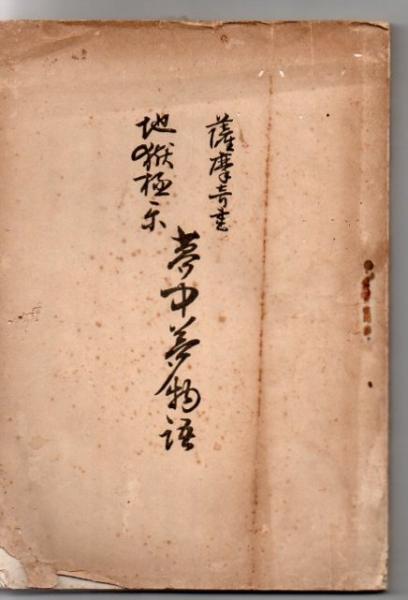 薩摩奇書
地獄極楽
夢中夢物語